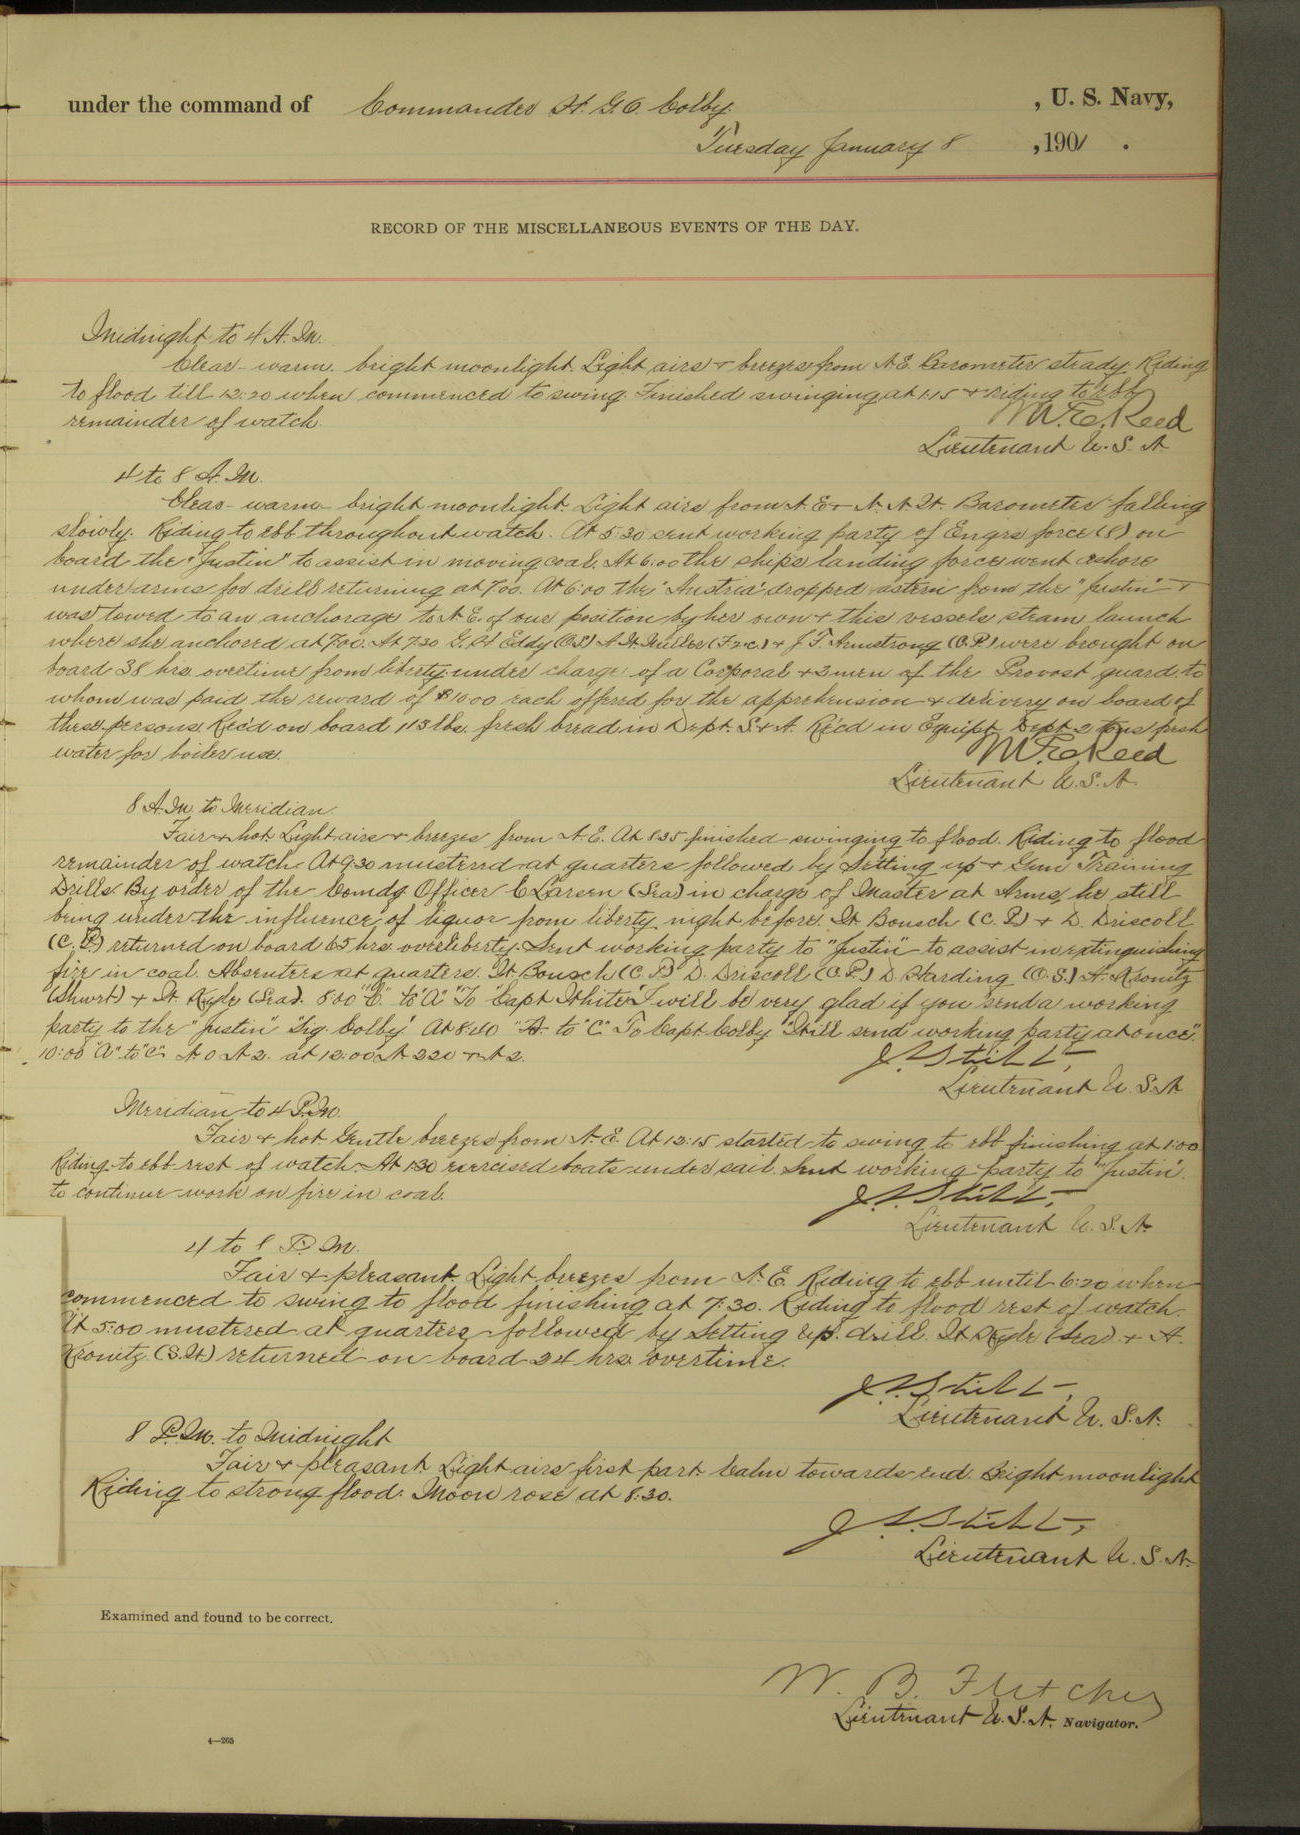 under the command of Commander H. G. O. Colby. , U. S. Navy,
Tuesday January 8 , 1901 .
RECORD OF THE MISCELLANEOUS EVENTS OF THE DAY.
Midnight to 4 A.M.
Clear - warm - bright moonlight. Light airs + breezes from N.E. Barometer steady. Riding
to flood till 12:20 when commenced to swing. Finished swinging at 1:15 + riding to ebb
remainder of watch.
M. E. Reed
Lieutenant U. S. N.
4 to 8 A.M.
Clear - warm - bright moonlight. Light airs from N.E. + N.N.W. Barometer falling
slowly. Riding to ebb throughout watch. At 5:30 sent working party of Engrs force (8) on
board the "Justin" to assist in moving coal. At 6:00 the ships landing force went ashore
under arms for drill returning at 7:00. At 6:00 the "Austria" dropped astern from the "Justin" +
was towed to an anchorage to N.E. of our position by her own + this vessels steam launch
where she anchored at 7:00. At 7:30 G. H. Eddy (O.S.) A. W. Miller (F2c.) + J. F. Armstrong (C.P.) were brought on
board 38 hrs. overtime from liberty under charge of a Corporal + 2 men of the Provost guard to
whom was paid the reward of $10.00 each offered for the apprehension + delivery on board of
these persons. Rec'd on board 113 lbs. fresh bread in Dept. S. + A. Rec'd in Equipt. Dept. 2 tons fresh
water for boiler use.
M. E. Reed
Lieutenant U.S.N.
8 A.M. to Meridian.
Fair + hot. Light airs + breezes from N.E. At 8:35 finished swinging to flood. Riding to flood
remainder of watch. At 9:30 mustered at quarters followed by Setting up + Gun Training
Drills. By order of the Comdg Officer C Larsen (Sea) in charge of Master at Arms, he still
being under the influence of liquor from liberty night before. W. Bousch (C.P.) + D. Driscoll
(C.P.) returned on board 65 hrs. overliberty. Sent working party to "Justin" to assist in extinguishing
fire in coal. Absentees at quarters. W. Bousch (C.P.) D. Driscoll (C.P.) D. Harding (O.S.) A. Kronitz
(Shwrt) + W. Kyle (Sea). 8:00 "C" to "A" "To Capt. White. I will be very glad if you send a working
party to the "Justin" Sig. Colby". At 8:40 "A" to "C" To Capt. Colby. "Will send working party at once".
10:00 "A" to "C" N 0 N 2. at 12:00 N 220 + N 2.
Lieutenant U.S.N.
Meridian to 4 P.M.
Fair + hot. Gentle breezes from N.E. At 12:15 started to swing to ebb finishing at 1:00
Riding to ebb rest of watch. At 1:30 exercised boats under sail. Sent working party to "Justin".
to continue work on fire in coal.
Lieutenant U.S.N.
4 to 8 P.M.
Fair + pleasant. Light breezes from N.E. Riding to ebb until 6:20 when
commenced to swing to flood finishing at 7:30. Riding to flood rest of watch.
At 5:00 mustered at quarters followed by Setting up drill. W. Kyle (Sea) + A.
Kronitz (S.W.) returned on board 24 hrs. overtime.
Lieutenant U.S.N.
8 P.M. to Midnight
Fair + pleasant. Light airs first part. Calm towards end. Bright moonlight
Riding to strong flood. Moon rose at 8:30.
Lieutenant U.S.N.
Examined and found to be correct.
W. B. Fletcher
Lieutenant U.S.N. Navigator.
4—265